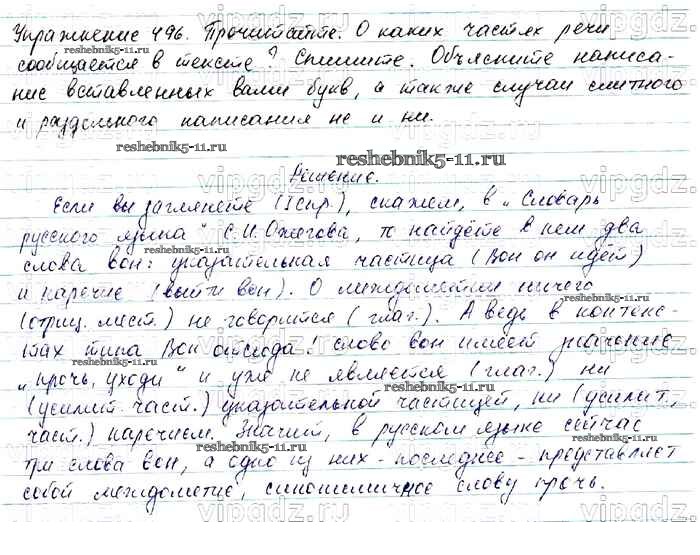 Упражнение 496. Прочитайте. О каких частях речи
сообщается в тексте? Спишите. Объясните написа-
ние вставленных вами букв, а также случаи слитного
и раздельного написания не и ни.
reshebnik5-11.ru
Решение.
Если вы заглянете (I спр.), скажем, в „Словарь
русского языка" С.И.Ожегова, то найдёте в нем два
слова вон: указательная частица (Вон он идёт)
и наречие (выйти вон). О междометии ничего
(отриц. мест.) не говорится (глаг.). А ведь в контекс-
тах типа Вон отсюда! слово вон имеет значение
„прочь, уходи" и уже не является (глаг.) ни
(усилит. част.) указательной частицей, ни (усилит.
част.) наречием. Значит, в русском языке сейчас
три слова вон, а одно из них - последнее - представляет
собой междометие, синонимичное слову прочь.
vipgdz.ru